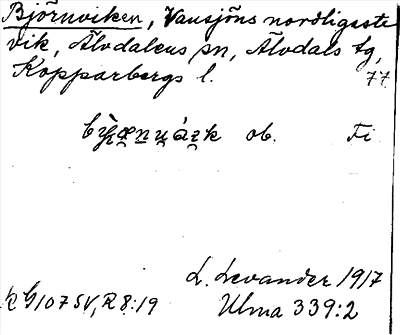 Björnviken, Vansjöns nordligaste
vik, Älvdalens sn, Älvdals tg,
Kopparbergs l. 77
ob. Fi
L. Levander 1917
k G107 SV, R 8:19 Ulma 339:2